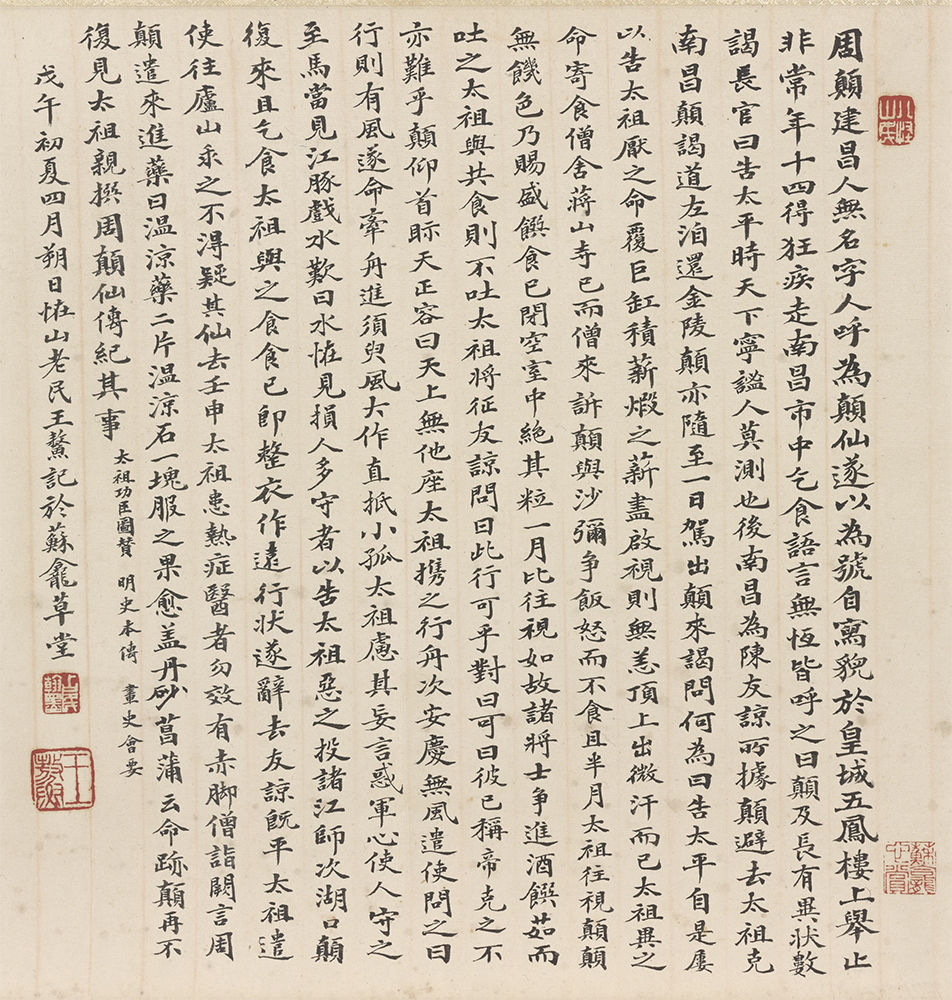 周顛建昌人無名字人呼為顛仙遂以為號自寫貌於皇城五鳳樓上舉止
非常年十四得狂疾走南昌市中乞食語言無恆皆呼之曰顛及長有異狀數
謁長官曰告太平時天下寧謐人莫測也後南昌為陳友諒所據顛避去太祖克
南昌顛謁道左洎還金陵顛亦隨至一日駕出顛來謁問何為曰告太平自是屢
以告太祖厭之命覆巨缸積薪煅之薪盡啟視則無恙頂上出微汗而已太祖異之
命寄食僧舍蔣山寺已而僧來訴顛與沙彌爭飯怒而不食且半月太祖往視顛顛
無饑色乃賜盛饌食已閉空室中絕其粒一月比往視如故諸將士爭進酒饌茹而
吐之太祖與共食則不吐太祖將征友諒問曰此行可乎對曰可曰彼已稱帝克之不
亦難乎顛仰首眎天正容曰天上無他座太祖攜之行舟次安慶無風遣使問之曰
行則有風遂命牽舟進須臾風大作直抵小孤太祖慮其妄言惑軍心使人守之
至馬當見江豚戲水歎曰水怪見損人多守者以告太祖惡之投諸江師次湖口顛
復來且乞食太祖與之食食已即整衣作遠行狀遂辭去友諒既平太祖遣
使往廬山求之不得疑其仙去壬申太祖患熱症醫者勿效有赤脚僧詣闕言周
顛遣來進藥曰溫涼藥二片溫涼石一塊服之果愈蓋丹砂菖蒲云命跡顛再不
復見太祖親撰周顛仙傳紀其事 太祖功臣圖贊 明史本傳 畫史會要
戊午初夏四月朔日恠山老民王鰲記於蘇龕草堂